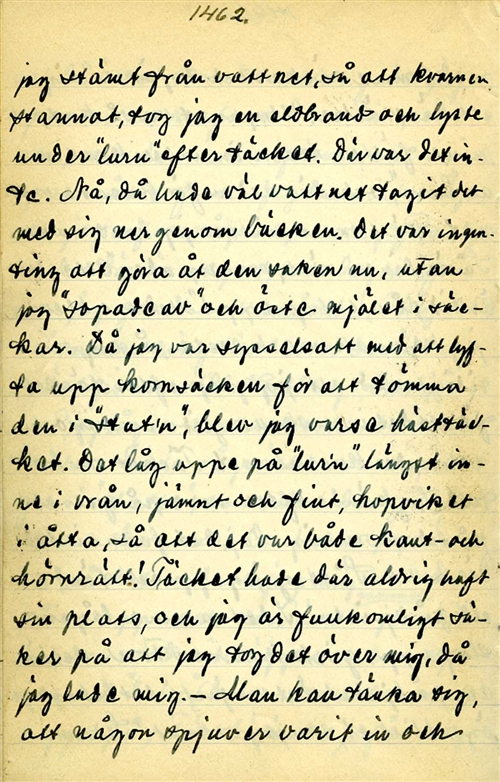 1462.
jag stämt från vattnet, så att kvarnen
stannat, tog jag en eldbrand och lyste
under "lurn" efter täcket. Där var det in-
te. Nå, då hade väl vattnet tagit det
med sig ner genom bäcken. Det var ingen-
ting att göra åt den saken nu, utan
jag "sopade av" och öste mjölet i säc-
kar. Då jag var sysselsatt med att lyf-
ta upp kornsäcken för att tömma
den i "stut'n", blev jag varse hästtäc-
ket. Det låg uppe på "lur'n" längst in-
ne i vrån, jämnt och fint, hopviket
i åtta, så att det var både kant- och
hörnrätt! Täcket hade där aldrig haft
sin plats, och jag är fullkomligt sä-
ker på att jag tog det över mig, då
jag lade mig. – Man kan tänka sig,
att någon spjuver varit in och